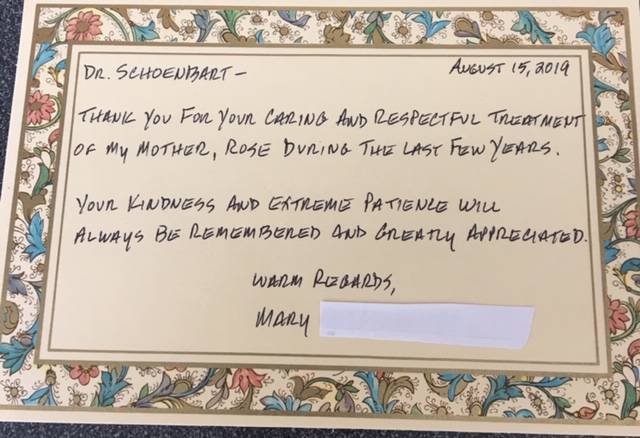 DR. SCHOENBART – AUGUST 15, 2019
THANK YOU FOR YOUR CARING AND RESPECTFUL TREATMENT
OF MY MOTHER, ROSE DURING THE LAST FEW YEARS.
YOUR KINDNESS AND EXTREME PATIENCE WILL
ALWAYS BE REMEMBERED AND GREATLY APPRECIATED.
WARM REGARDS,
MARY